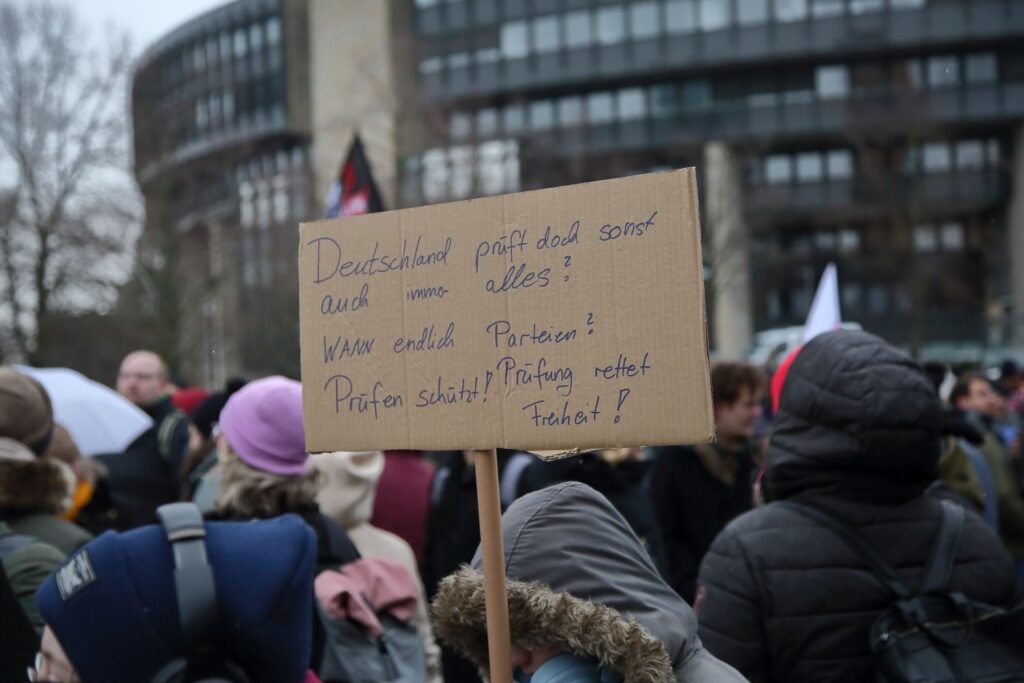 Deutschland prüft doch sonst
auch immer alles?
WANN endlich Parteien?
Prüfen schützt! Prüfung rettet
Freiheit!